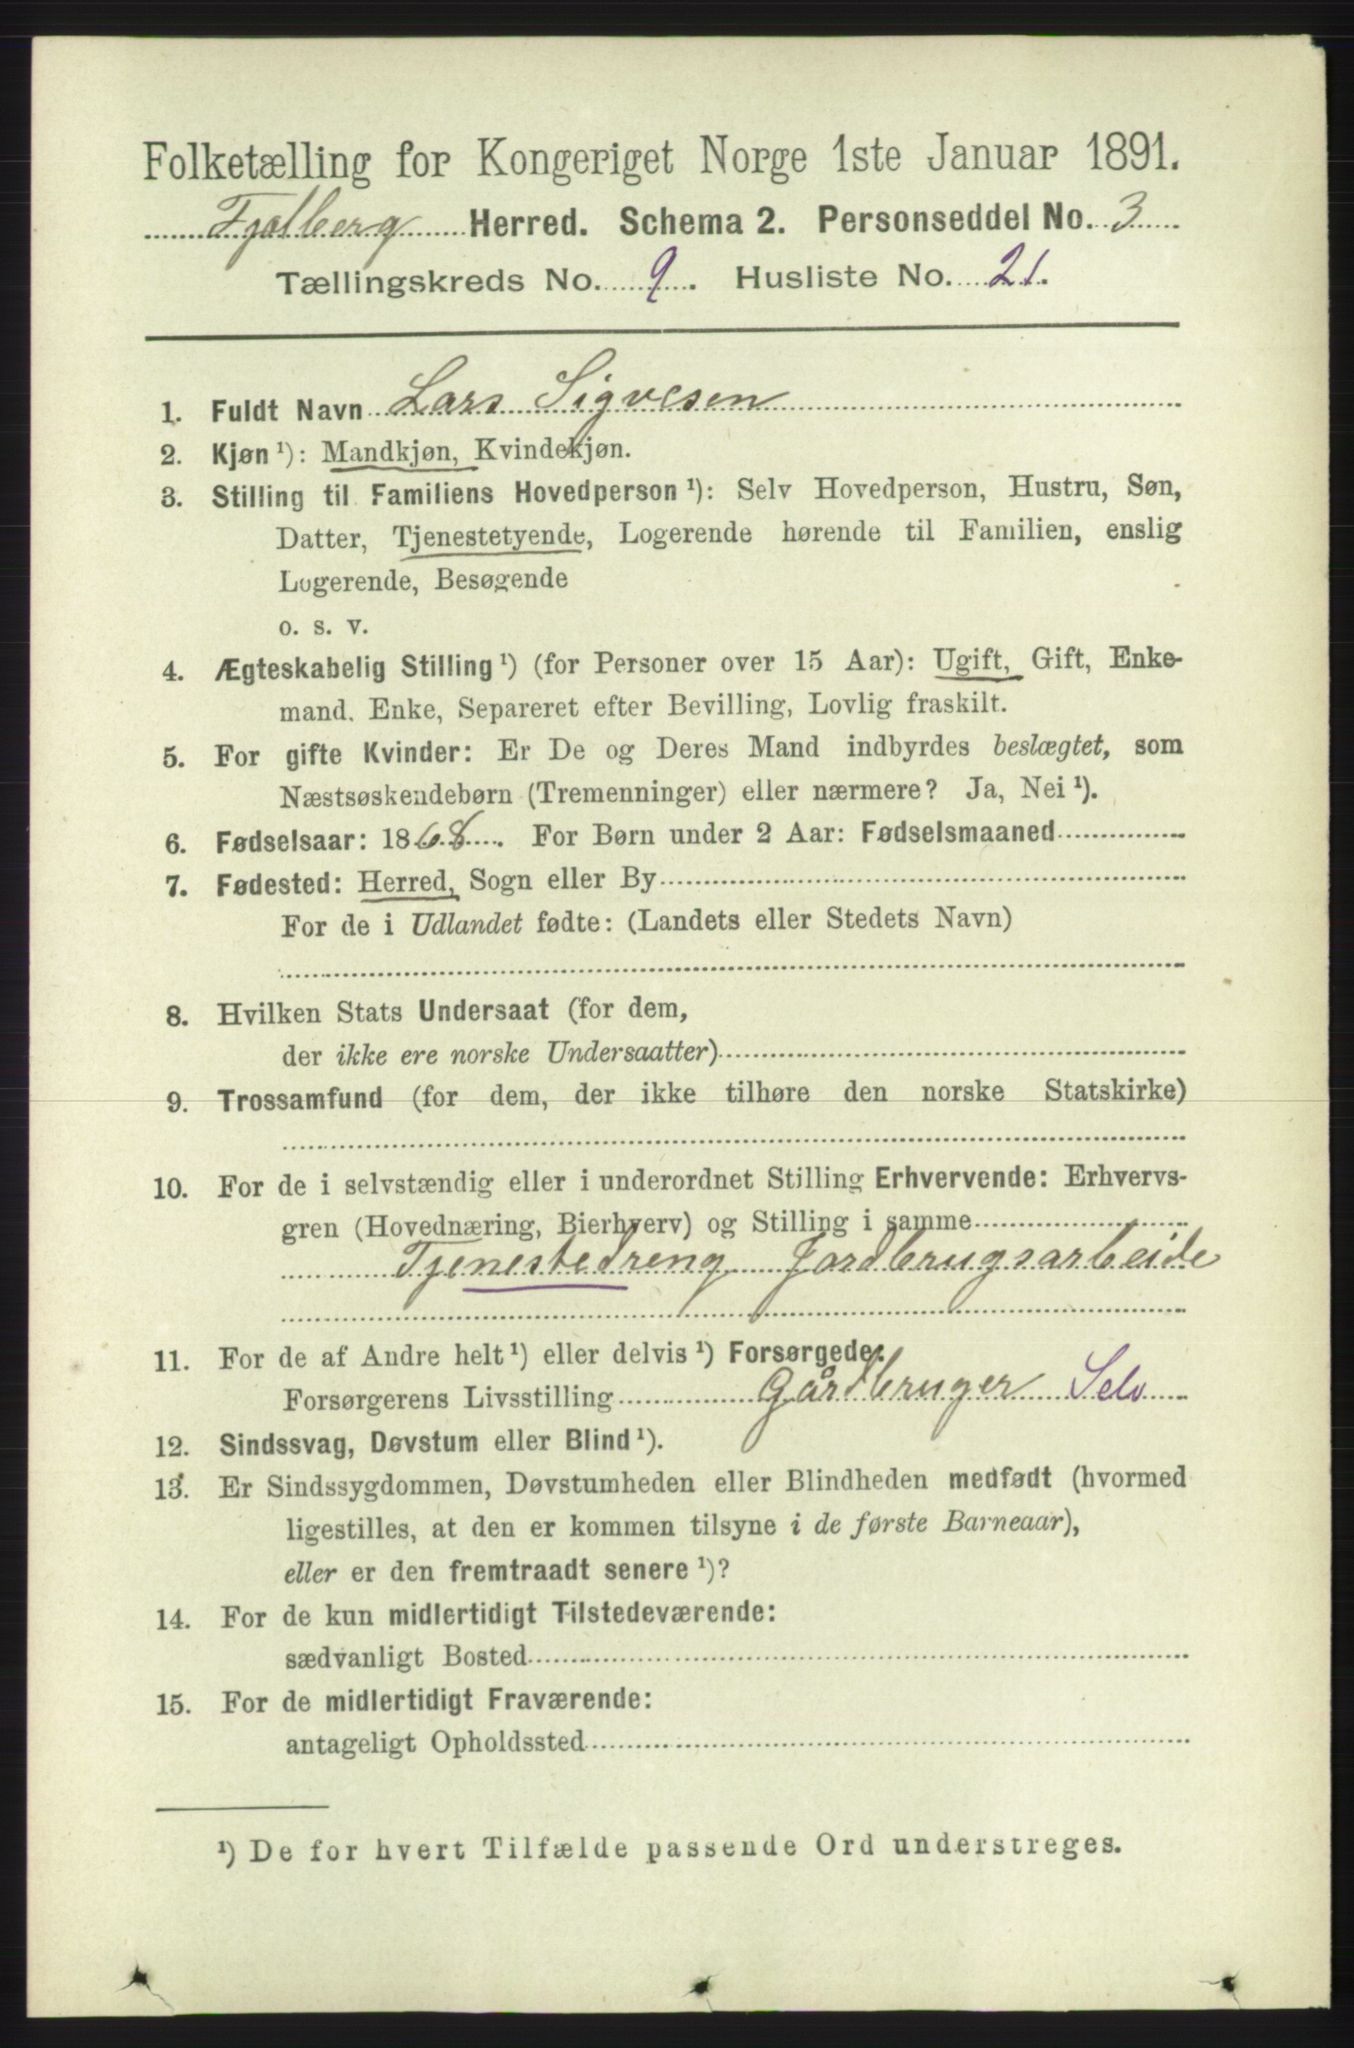 Folketælling for Kongeriget Norge 1ste Januar 1891.
Fjelberg Herred. Schema 2. Personseddel No. 3
Tællingskreds No. 9. Husliste No. 21.
1. Fuldt Navn Lars Sigvesen
2. Kjøn ¹): Mandkjøn, Kvindekjøn.
3. Stilling til Familiens Hovedperson ¹): Selv Hovedperson, Hustru, Søn,
Datter, Tjenestetyende, Logerende hørende til Familien, enslig
Logerende, Besøgende
o. s. v.
4. Ægteskabelig Stilling ¹) (for Personer over 15 Aar): Ugift, Gift, Enke-
mand. Enke, Separeret efter Bevilling, Lovlig fraskilt.
5. For gifte Kvinder: Er De og Deres Mand indbyrdes beslægtet, som
Næstsøskendebørn (Tremenninger) eller nærmere? Ja, Nei ¹).
6. Fødselsaar: 1868. For Børn under 2 Aar: Fødselsmaaned
7. Fødested: Herred, Sogn eller By
For de i Udlandet fødte: (Landets eller Stedets Navn)
8. Hvilken Stats Undersaat (for dem,
der ikke ere norske Undersaatter)
9. Trossamfund (for dem, der ikke tilhøre den norske Statskirke)
10. For de i selvstændig eller i underordnet Stilling Erhvervende: Erhvervs-
gren (Hovednæring, Bierhverv) og Stilling i samme
Tjenestedreng Jordbrugsarbeide
11. For de af Andre helt ¹) eller delvis ¹) Forsørgede:
Forsørgerens Livsstilling Gårdbruger Selv
12. Sindssvag, Døvstum eller Blind ¹).
13. Er Sindssygdommen, Døvstumheden eller Blindheden medfødt (hvormed
ligestilles, at den er kommen tilsyne i de første Barneaar),
eller er den fremtraadt senere ¹)?
14. For de kun midlertidigt Tilstedeværende:
sædvanligt Bosted
15. For de midlertidigt Fraværende:
antageligt Opholdssted
¹) De for hvert Tilfælde passende Ord understreges.